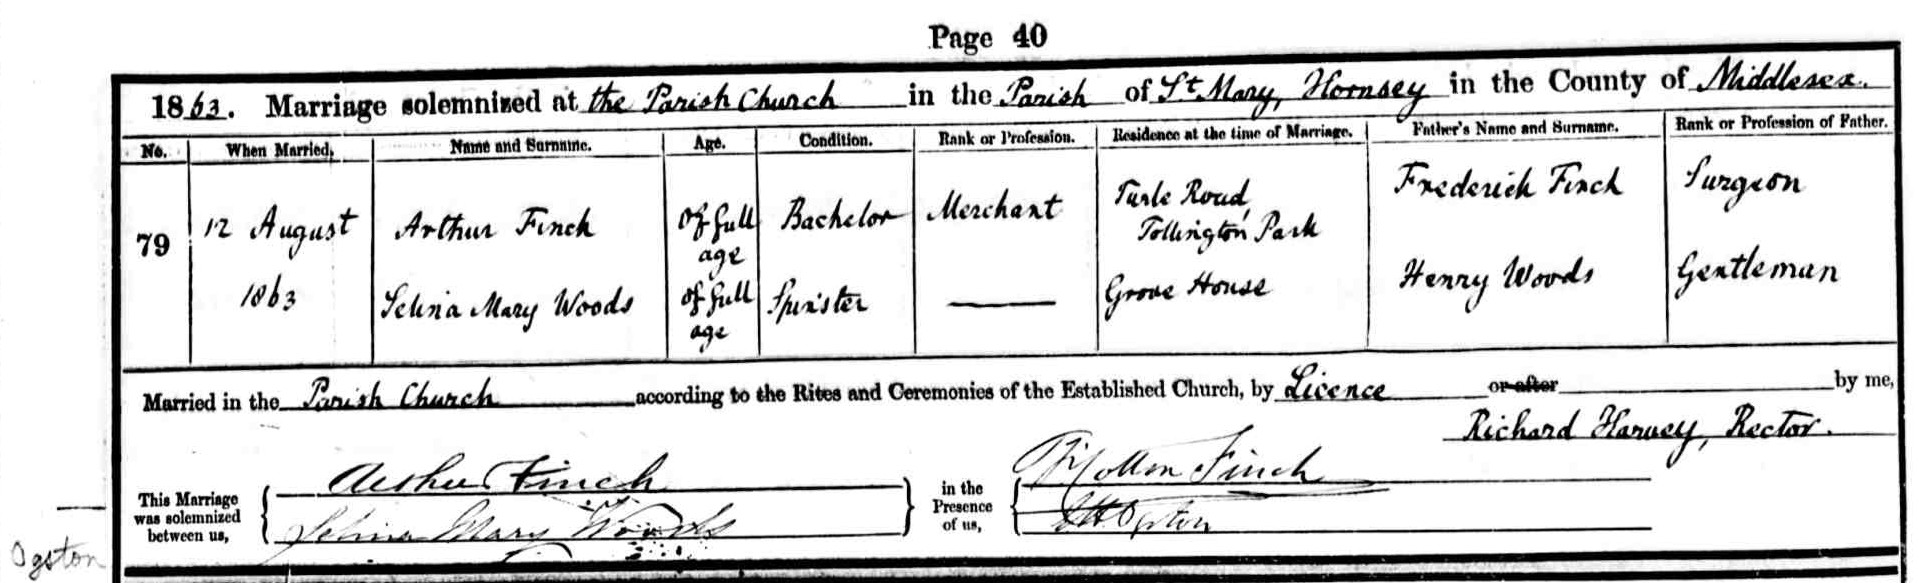 Page 40
1863. Marriage solemnized at the Parish Church in the Parish of St. Mary, Hornsey in the County of Middlesex.
No. When Married. Name and Surname. Age. Condition. Rank or Profession. Residence at the time of Marriage. Father's Name and Surname. Rank or Profession of Father.
79 12 August Arthur Finch Of full age Bachelor Merchant Turle Road, Tollington Park Frederick Finch Surgeon
1863 Selina Mary Woods Of full age Spinster Grove House Henry Woods Gentleman
Married in the Parish Church according to the Rites and Ceremonies of the Established Church, by Licence or after by me,
Richard Harvey, Rector.
This Marriage was solemnized between us, Arthur Finch Selina Mary Woods in the Presence of us, Finch Ogston
Ogston